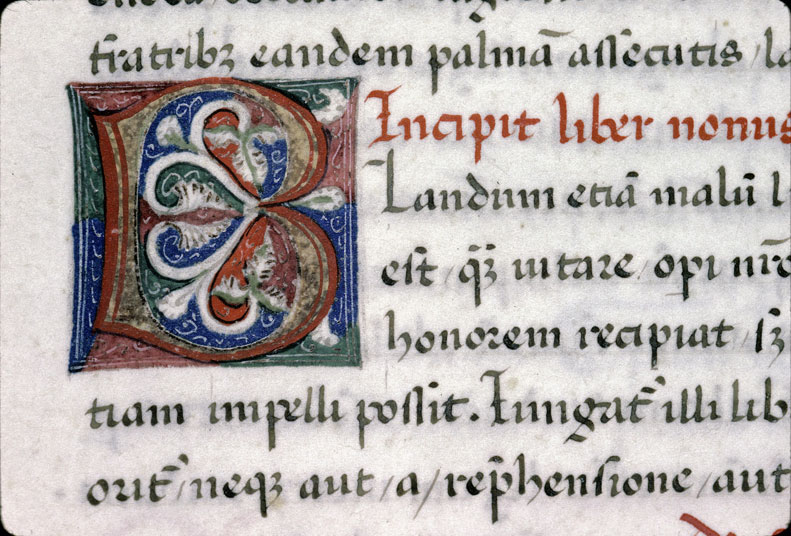 fratribꝫ eandem palmā assecutis / la
Incipit liber nonus
B Landum etiā malū l
est / qꝫ̄ uitare / opi nr̄o
honorem recipiat / sꝫ
tiam impelli possit. Iungat᷑ illi lib
orit᷑ / neqꝫ aut / a / rep̄hensione / aut